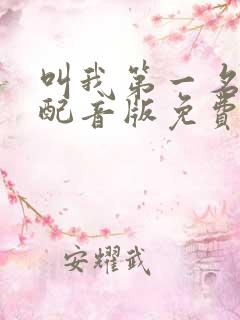 叫我第一名
配音版免费
安耀武